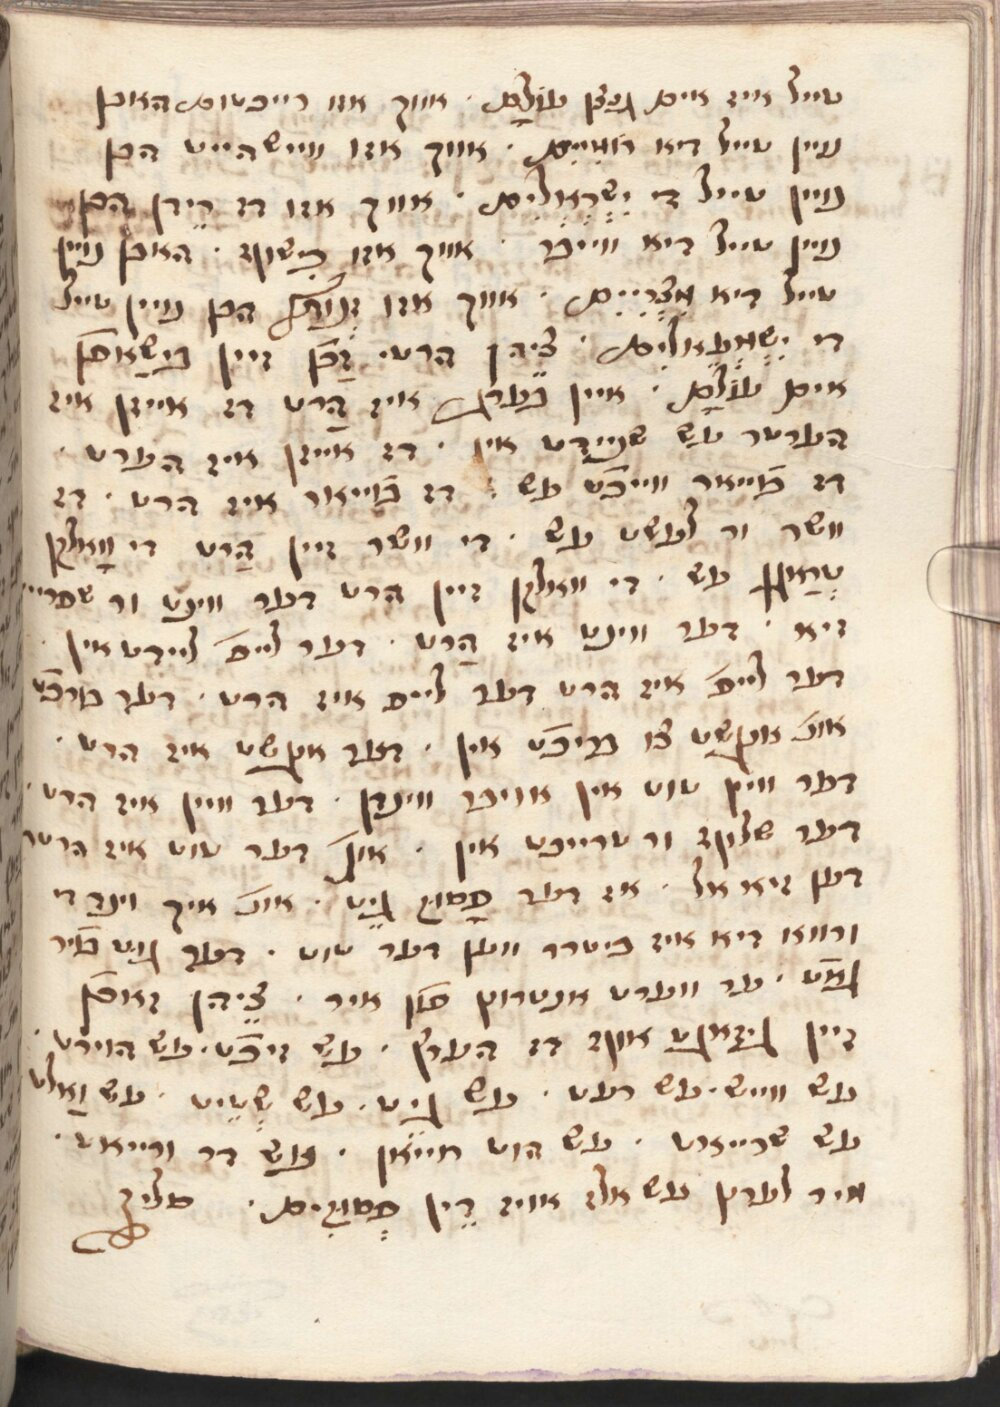 טייל איז אים גנצן עוֹלָם · אווך אזו רייכטום האבן
ניין טייל דיא רוֹמִיִים · אווך אזו ווייש הייט הבן
ניין טייל די יִשְרְאֵלִים · אווך אזו דז רֵידן הבן
ניין טייל דיא ווייבר · אווך אזו כישוף · האבן ניין
טייל דיא מִצְרִיִים · אווך אזו הבן ניין טייל
די יִשְמְעֵאלִים · צֵיהן הרטי זַכֿן זיין בישַאפֿן
אים עוֹלָם · איין בערג איז הַרט דז אייזן איז
הערטר עש שניידט אין · דז אייזן איז הערט ·
דז פֿייאר ווייכֿט עש · דז פֿייאור איז הרט · דז
וושר ור לעשט עש · די וושר זיין הַרט די וואלקן
טְרַאגן עש · די וואלקן זיין הרט דער ווינט ור שפריי
זיא · דער ווינט איז הַרט · דער לייב לײדט אין ·
דער לייב איז הרט דער לייב איז הרט · דער ורכֿט
אונ אנגשט צו בריכֿט אין · דער אנגשט איז הרט ·
דער וויין טוט אין אויבר ווינדן · דער וויין איז הרט ·
דער שלאף ור טרייבט אין · אונ דער טוט איז הרטר
דען זיא אל · אז דער פָסוּק גֵיט · אונ איך וינד די
ורווא דיא איז ביטרר ווען דער טוט · דער גוט פֿיר
גאט · ער ווערט אנטרונן פֿון איר · צֵיהן זאכֿן
זיין גיזאגט אויף דז הערץ · עש זיכֿט · עש הוירט ·
עש ווייש · עש רעט · עש גייט · עש שְטֵיט · עש וַאלט
עש שרייאט · עש הוט מייאן · עש דר ורייאט ·
מיר לערנן עש אלז אויז דֵין פְסוּקִים · סליק